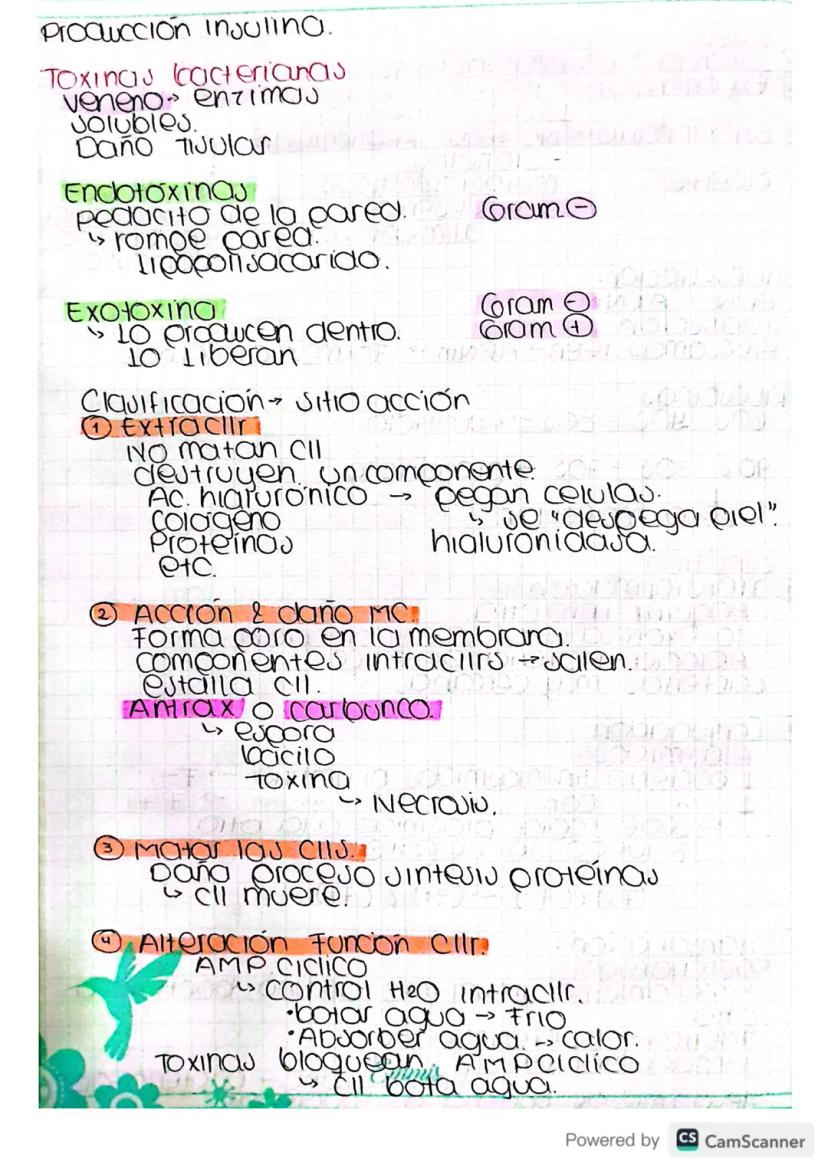 Producción insulina.
Toxinas bacterianas
veneno → enzimas
solubles.
Daño Tisular
Endotoxinas
pedacito de la pared.
Gram ⊖
↳ rompe pared.
lipopolisacarido.
Exotoxina
Gram ⊖
↳ Lo producen dentro.
Gram ⊕
Lo liberan
Clasificación → sitio acción
① Extracllr
No matan cll
destruyen un componente.
Ac. hialurónico → pegan celulas.
Colágeno ↳ se "despega piel".
Proteínas hialuronidasa.
etc.
② Acción & daño MC.
Forma poro en la membrana.
componentes intracllrs → salen.
estalla cll.
Antrax o carbunco.
↳ espora
bacilo
toxina
↳ Necrosis.
③ Matar las clls.
Daña proceso síntesis proteínas
↳ cll muere.
④ Alteración Función cllr.
AMP ciclico
↳ control H2O intracllr.
•botar agua → Frio
•Absorber agua. → calor.
Toxinas bloquean AMPciclico
↳ cll bota agua.
Powered by CS CamScanner